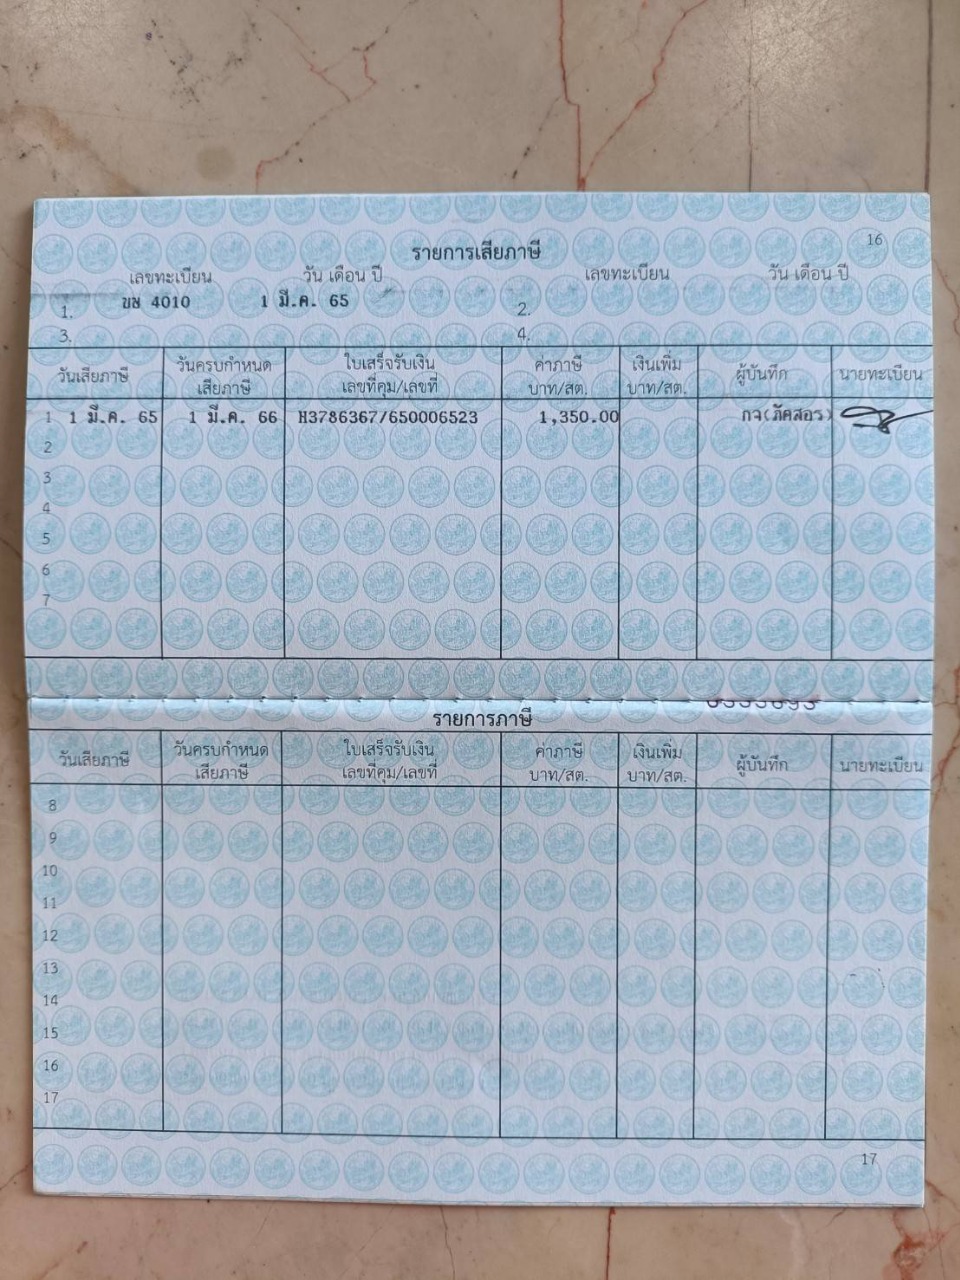 16
รายการเสียภาษี
เลขทะเบียน วัน เดือน ปี เลขทะเบียน วัน เดือน ปี
1. ขษ 4010 1 มี.ค. 65 2.
3. 4.
วันเสียภาษี วันครบกำหนดเสียภาษี ใบเสร็จรับเงิน เลขที่คุม/เลขที่ ค่าภาษี บาท/สต. เงินเพิ่ม บาท/สต. ผู้บันทึก นายทะเบียน
1 1 มี.ค. 65 1 มี.ค. 66 H3786367/650006523 1,350.00 กจ(ภัคสอร)
2
3
4
5
6
7
รายการภาษี
วันเสียภาษี วันครบกำหนดเสียภาษี ใบเสร็จรับเงิน เลขที่คุม/เลขที่ ค่าภาษี บาท/สต. เงินเพิ่ม บาท/สต. ผู้บันทึก นายทะเบียน
8
9
10
11
12
13
14
15
16
17
17